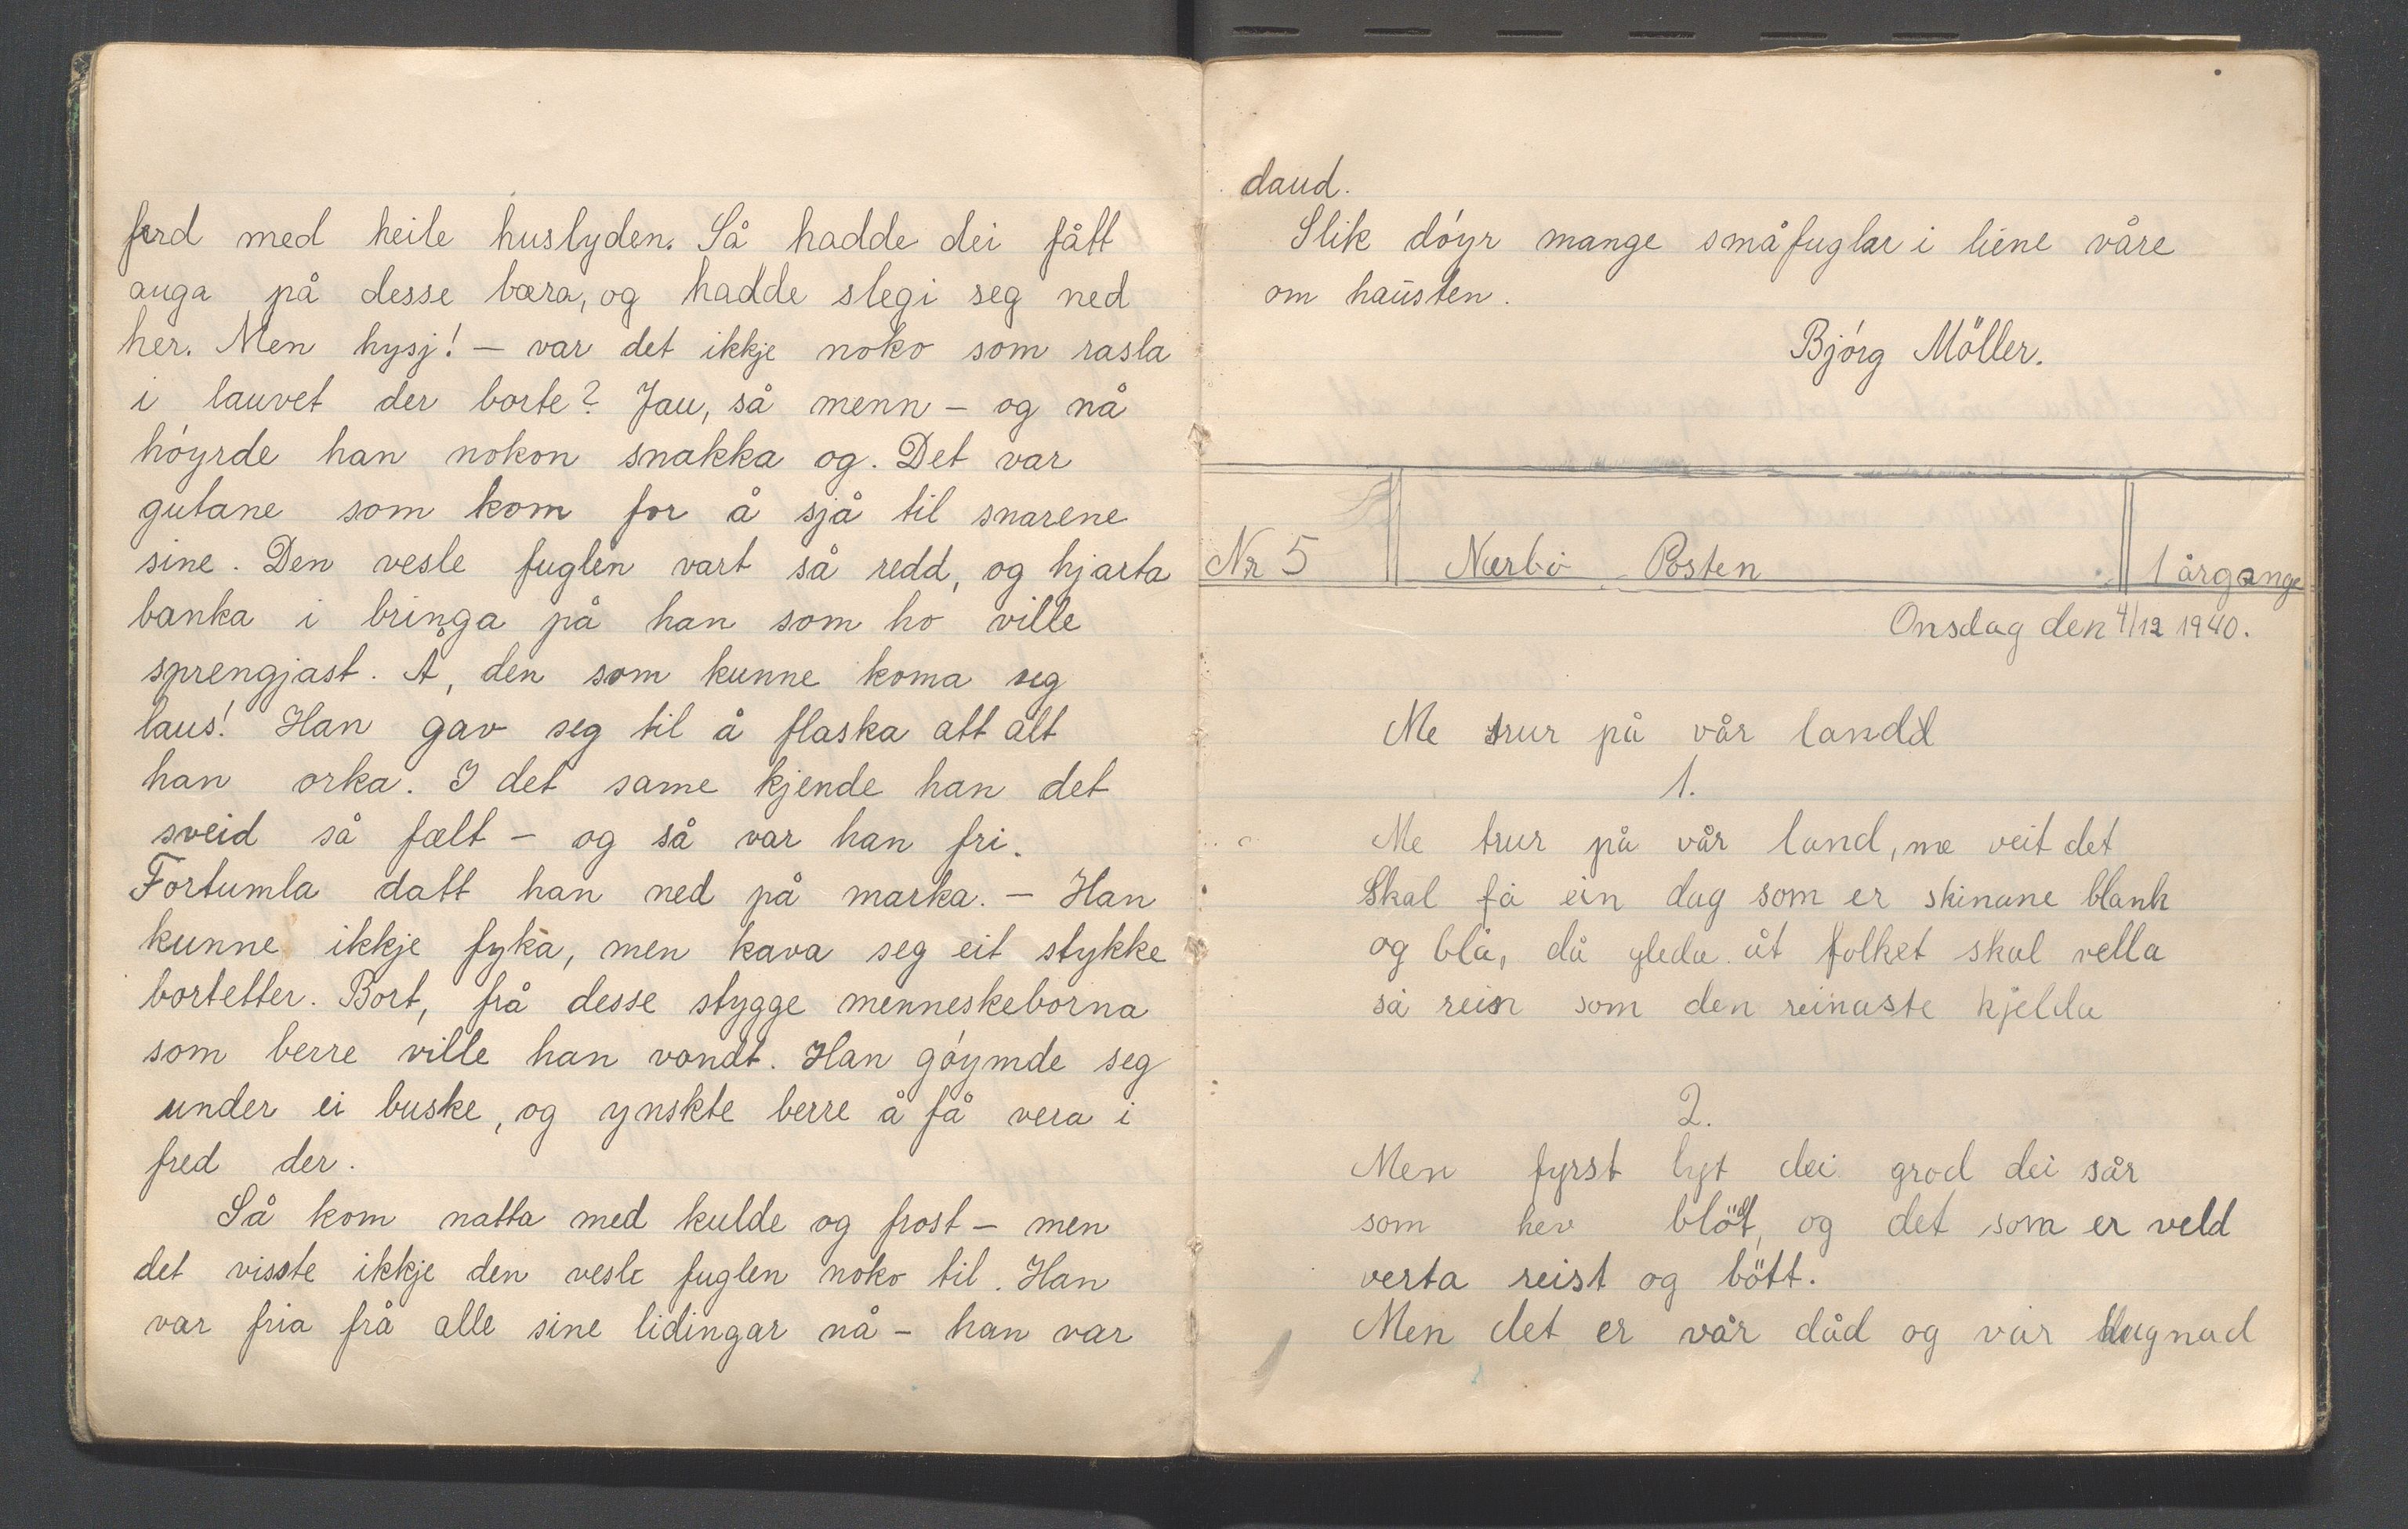 ferd med heile huslyden. Så hadde dei fått
auga på desse bæra, og hadde slegi seg ned
her. Men hysj! – var det ikkje noko som rasla
i lauvet der borte? Jau, så menn – og nå
høyrde han nokon snakka og. Det var
gutane som kom for å sjå til snarene
sine. Den vesle fuglen vart så redd, og hjarta
banka i bringa på han som ho ville
sprengjast. Å, den som kunne koma seg
laus! Han gav seg til å flaska att alt
han orka. I det same kjende han det
sveid så fælt – og så var han fri.
Fortumla datt han ned på marka. – Han
kunne ikkje fyka, men kava seg eit stykke
bortetter. Bort, frå desse stygge menneskeborna
som berre ville han vondt. Han gøymde seg
under ei buske, og ynskte berre å få vera i
fred der.
Så kom natta med kulde og frost – men
det visste ikkje den vesle fuglen noko til. Han
var fria frå alle sine lidingar nå – han var
daud.
Slik døyr mange småfuglar i liene våre
om hausten.
Bjórg Möller.
Nr 5 Nærbø Posten 1 årgange
Onsdag den 4/12 1940.
Me trur på vår land
1.
Me trur på vår land, me veit det
Skal få ein dag som er skinane blank
og blå, då gleda åt folket skal vella
så rein som den reinaste kjelda
2.
Men fyrst lyt dei grod dei sår
som hev blött, og det som er veld
verta reist og bött.
Men det er vår dåd og vår hugnad